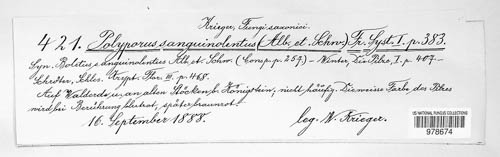 Krieger, Fungi saxonici.
421. Polyporus sanguinolentus (Alb. et Schw.) Fr. Syst. I. p. 383.
Syn. Boletus sanguinolentus Alb. et Schw. (Consp. p. 257.) – Winter, Die Pilze, I. p. 407. –
Schröter, Schles. Krypt. Flor. III. p. 468.
Auf Walderde, u. an alten Stöcken b. Königstein, nicht häufig. Die weisse Farbe des Pilzes
wird bei Berührung blutrot, später braunrot.
16. September 1888.
leg. W. Krieger.
US NATIONAL FUNGUS COLLECTIONS
978674